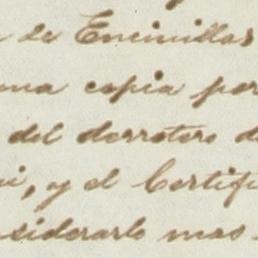 de Encinillas
una copia por
del derrotero de
, y el Certifi
nsiderarlo mas